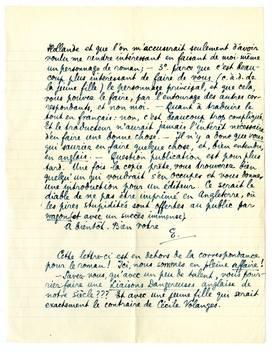 Hollande et que l'on m'accuserait seulement d'avoir
voulu me rendre intéressant en faisant de moi-même
un personnage de roman; — 3° parce que c'est beau-
coup plus intéressant de faire de vous (c.à.d. de
la jeune fille) le personnage principal, et que cela,
vous pouvez le faire, par l'entourage des autres cor-
respondants, et non moi. — Quant à traduire le
tout en français: non, c'est beaucoup trop compliqué
et le traducteur n'aurait jamais l'intérêt nécessaire
d'en faire une bonne chose. — Il n'y a donc que vous
qui sauriez en faire quelque chose, et, bien entendu,
en anglais. — Question publication est pour plus
tard. Une fois la copie prête, vous trouverez bien
quelqu'un qui voudrait s'en occuper et vous donner
une introduction pour un éditeur. Ce serait le
diable de ne pas être imprimé en Angleterre, où
les pires stupidités sont offertes au public par
wagons (et avec un succès immense).
A bientôt. Bien vôtre
E.
Cette lettre-ci est en dehors de la correspondance
pour le roman! Ici, nous sommes en pleine affaire!
— Savez-vous, qu'avec un peu de talent, vous pour-
riez faire une Liaisons Dangereuses anglaise de
notre siècle??? Et avec une jeune fille qui serait
exactement le contraire de Cécile Volanges.